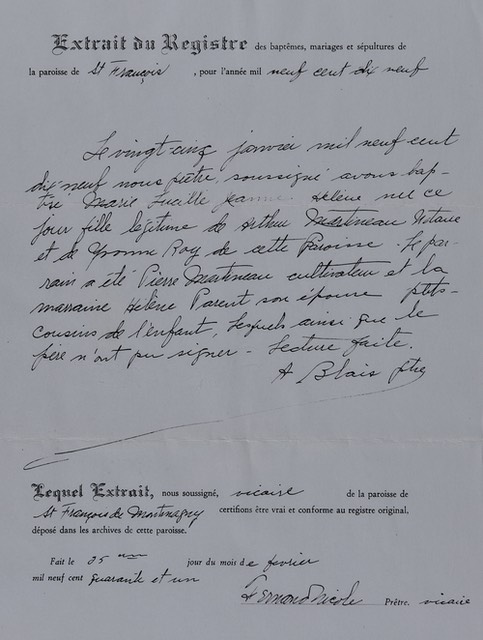 Extrait du Registre des baptêmes, mariages et sépultures de
la paroisse de St François , pour l'année mil neuf cent dix neuf
Le vingt-cinq janvier mil neuf cent
dix neuf nous prêtre, soussigné avons bap-
tisé Marie Lucille Jeanne Hélène née ce
jour fille légitime de Arthur Martineau
et de Yvonne Roy de cette Paroisse. Le par-
rain a été Pierre Martineau cultivateur et la
marraine Hélène Parent son épouse ptits-
cousins de l'enfant, lesquels ainsi que le
père n'ont pu signer - Lecture faite.
A Blais ptre
Lequel Extrait, nous soussigné, vicaire de la paroisse de
St François de Montmagny certifions être vrai et conforme au registre original,
déposé dans les archives de cette paroisse.
Fait le 25 jour du mois de février
mil neuf cent quarante et un
Fernand Nicole Prêtre, vicaire